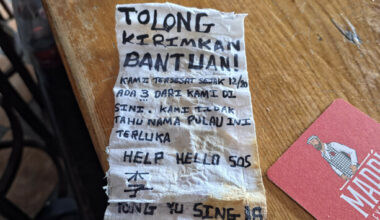 TOLONG
KIRIMKAN
BANTUAN!
KAMI TERSESAT SEJAK 12/20
ADA 3 DARI KAMI DI
SINI. KAMI TIDAK
TAHU NAMA PULAU INI
TERLUKA
HELP HELLO SOS
李
TONG YU SING
MATOR